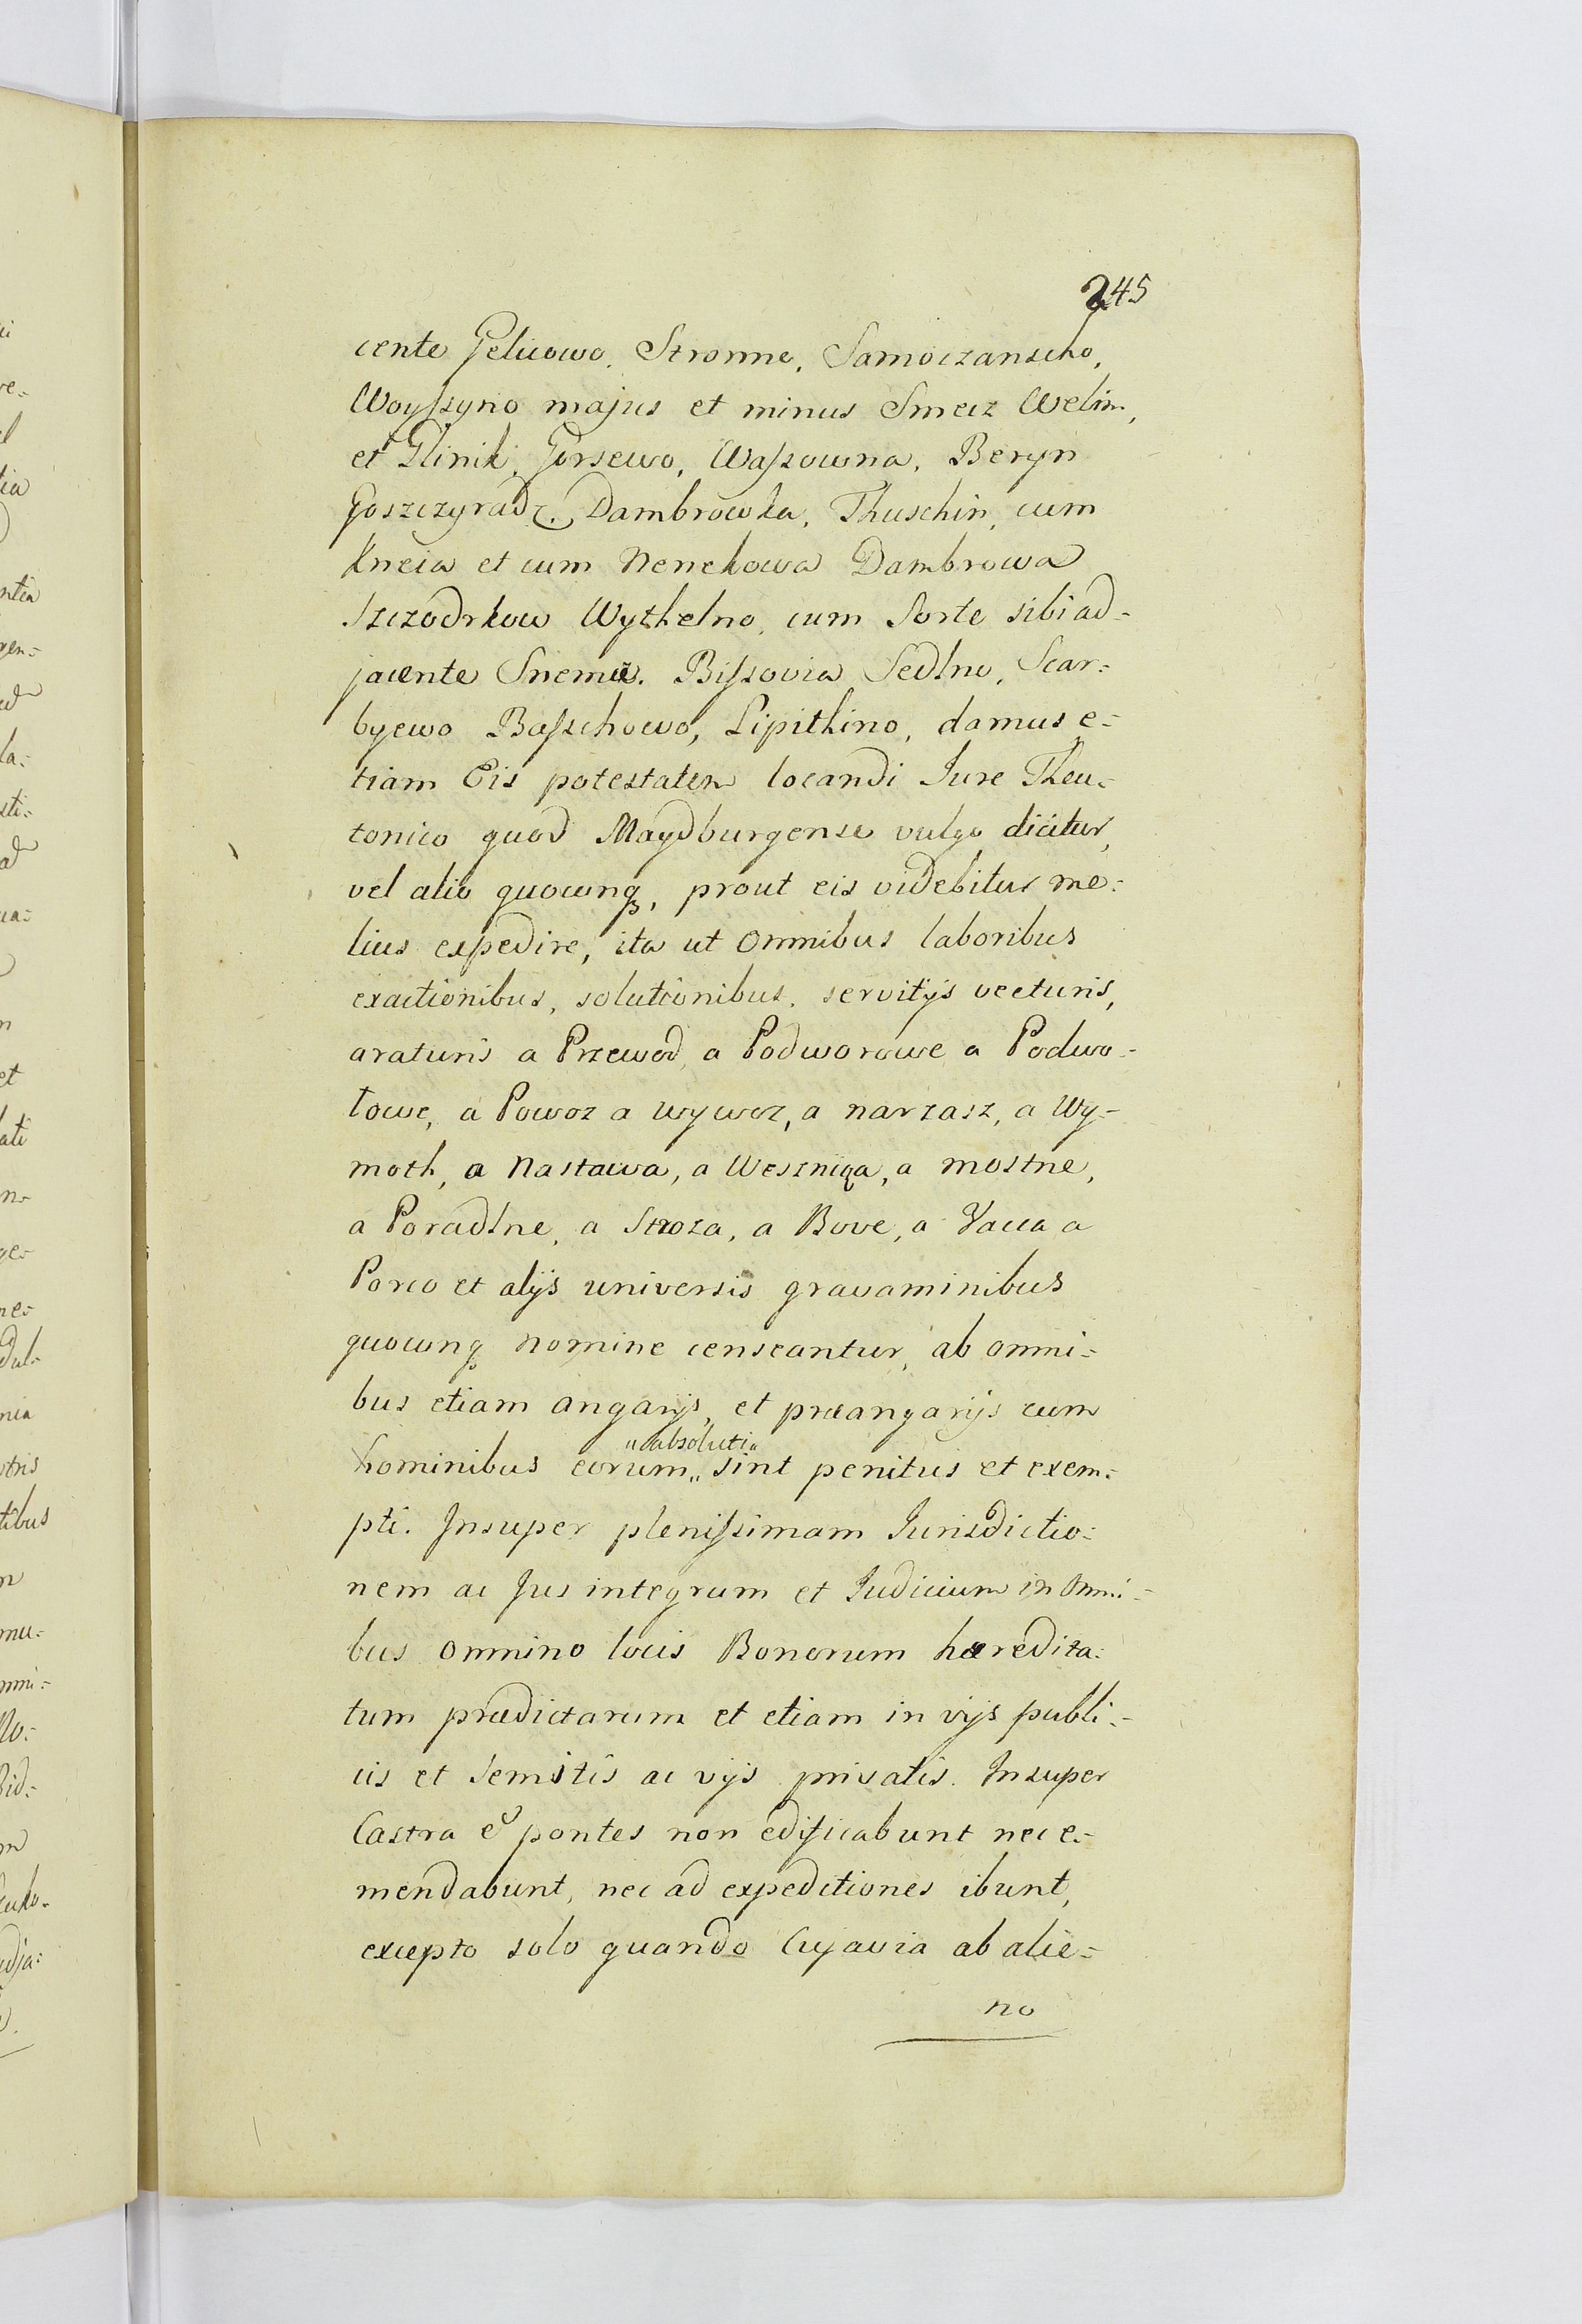 245
cente Gelicowo, Stronne, Samoczanscho,
Woyſzyno majus et minus Smecz Welin,
et Glinik, Gorsewo, Waſzowna, Beryn
Goszczyradz. Dambrowka, Thuschin, cum
Kneia et cum Nenekowa Dambrowa
Szczodrkow Wythelno, cum Sorte sibi ad-
jacente Snemcz. Biſsovia Sedlno, Scar-
byewo Baſschowo, Lipithino, damus e-
tiam Eis potestatem locandi Jure Theu-
tonico quod Maydburgense vulgo dicitur,
vel alio quocunqꝫ, prout eis videbitur me-
lius expedire, ita ut omnibus laboribus
exactionibus, solutionibus, servitijs vecturis,
araturis a Przewod, a Podworowe a Podwo-
rowe, a Powoz a wywoz, a narzasz, a Wy-
moth, a Nastawa, a Weszniqa, a mostne,
a Poradlne, a Stroza, a Bove, a Vacca a
Porco et alijs universis gravaminibus
quocunqꝫ nomine censeantur, ab omni-
bus etiam angarijs, et præangarijs cum
„absoluti„
hominibus eorum „ sint penitus et exem-
pti. Insuper pleniſsimam Jurisdictio-
nem ac Jus integrum et Judicium in omni-
bus omnino locis Bonorum hæredita-
tum prædictarum et etiam in vijs publi-
cis et semitis ac vijs privatis. Insuper
Castra et pontes non edificabunt nec e-
mendabunt, nec ad expeditiones ibunt,
excepto solo quando Cujavia ab alie-
no